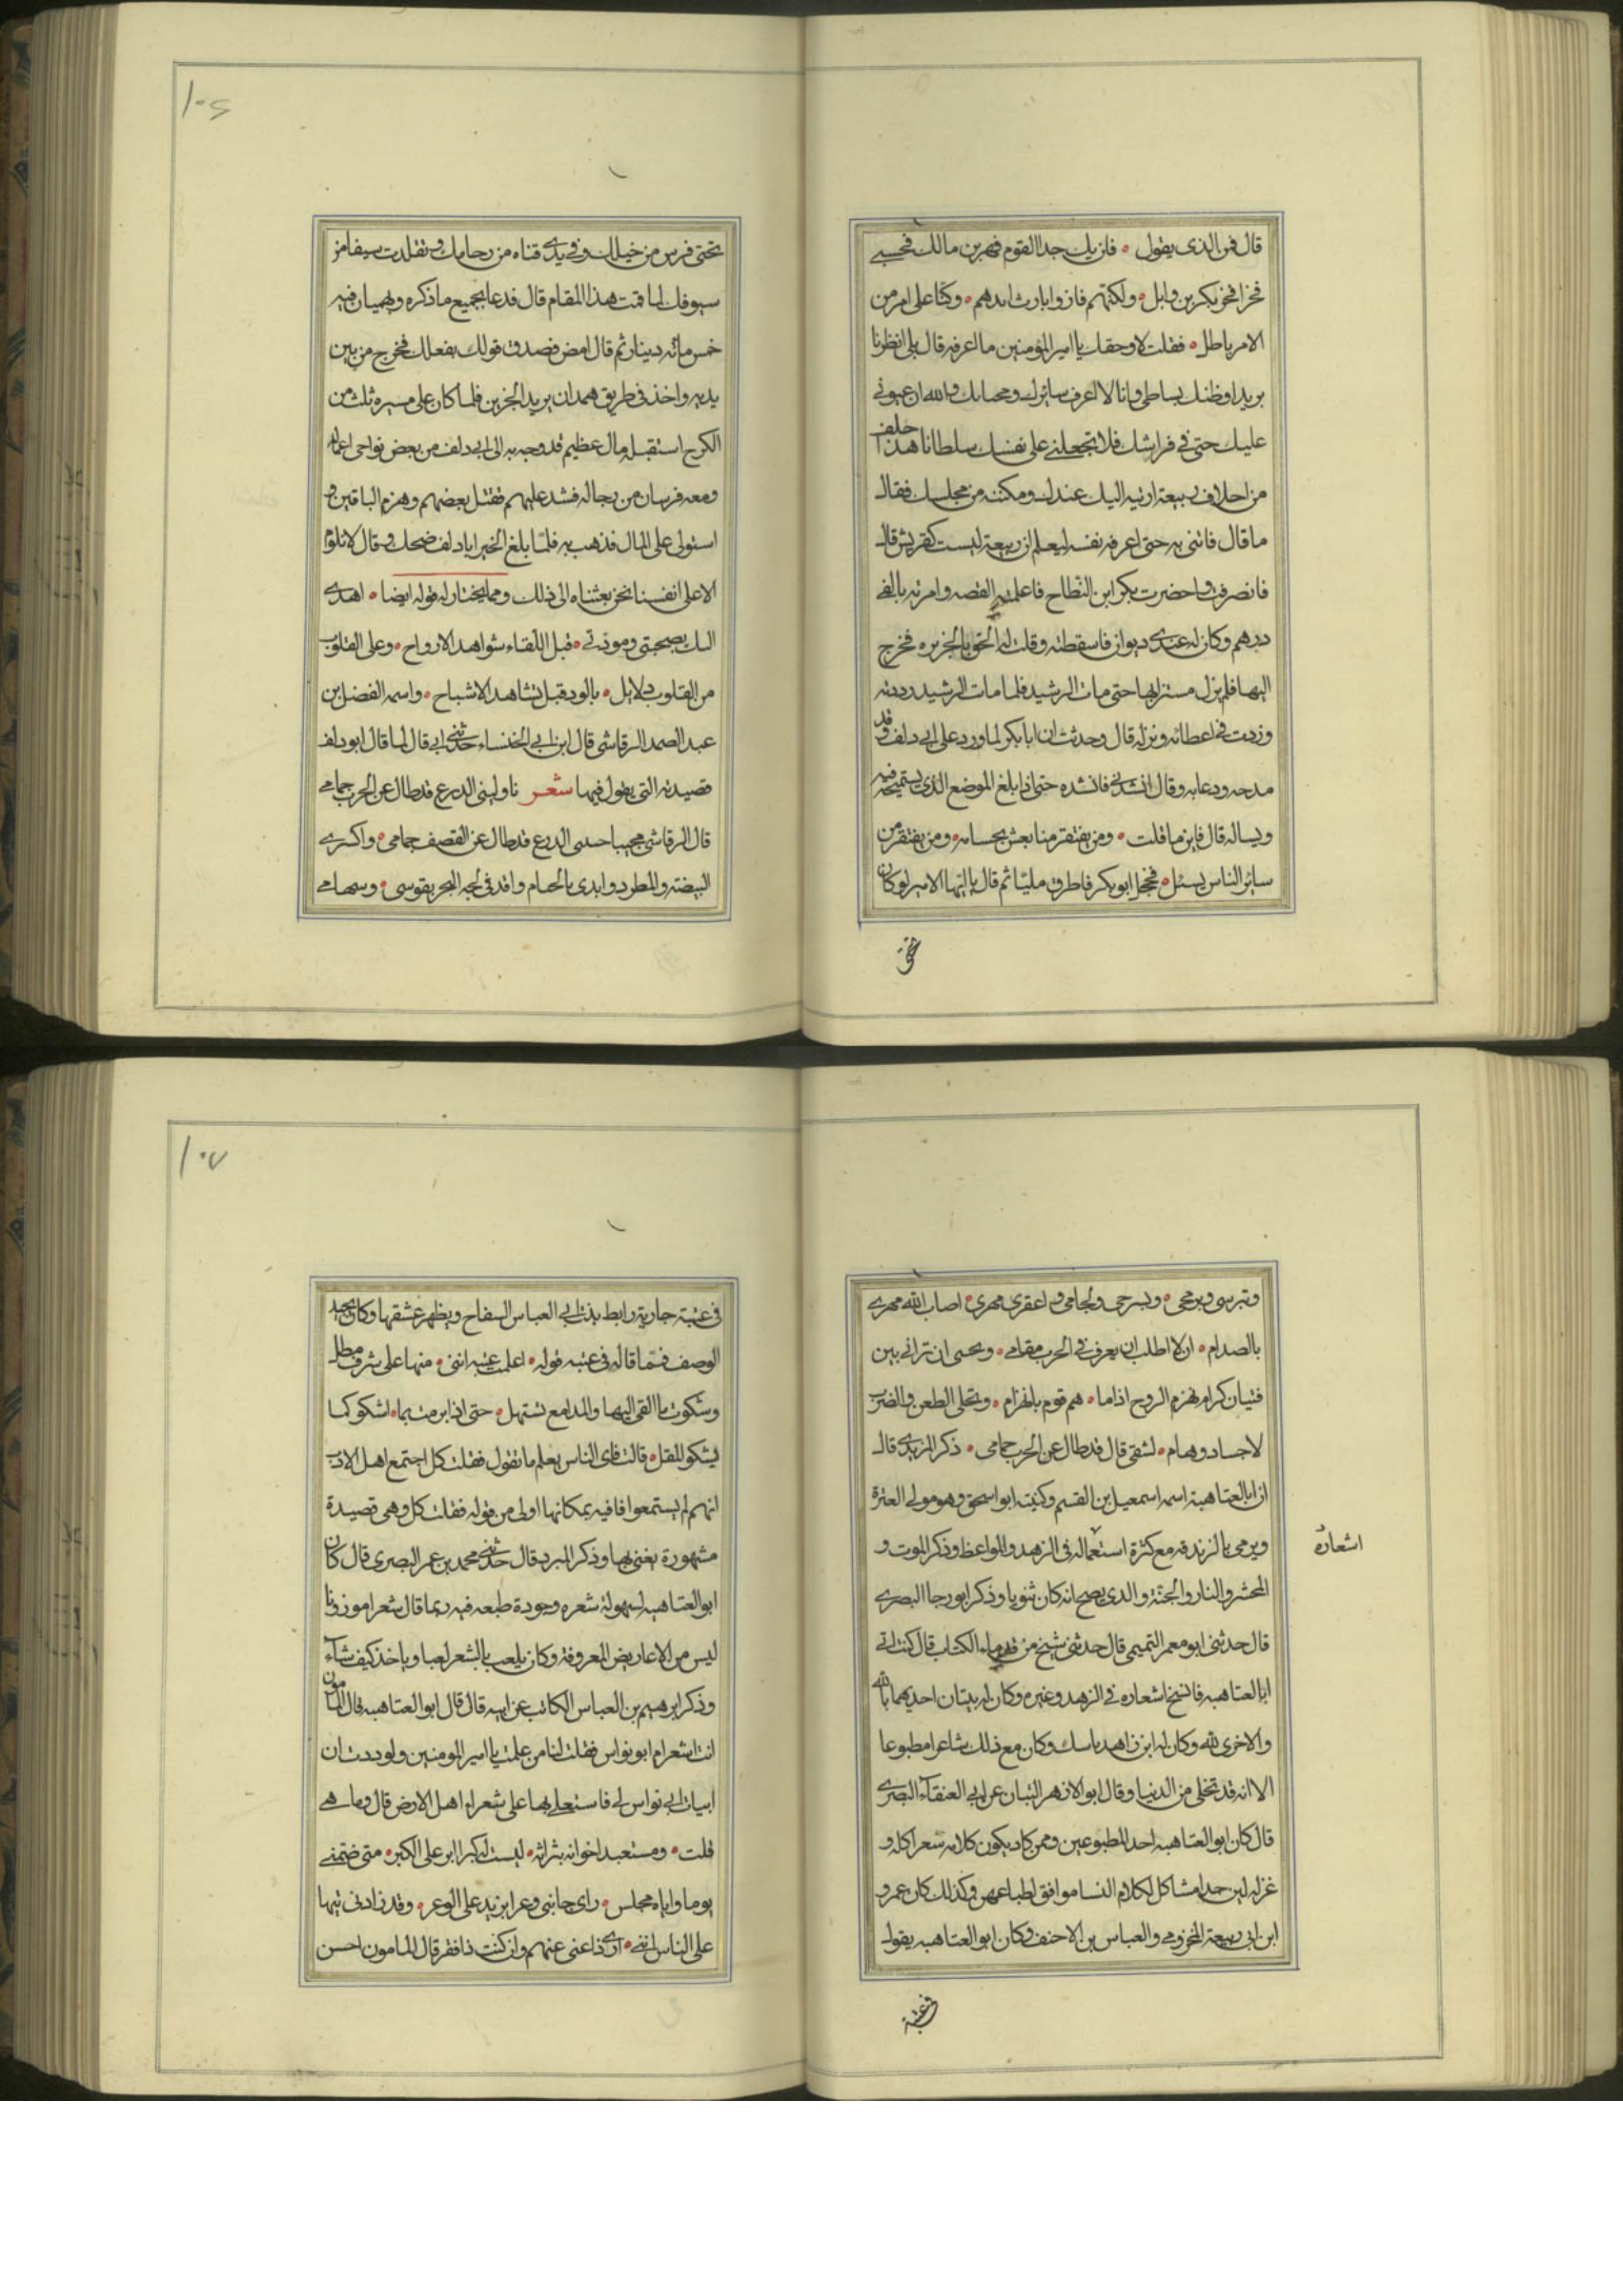 قال فمن الذى يقول ٥ فان يك جدا القوم فهر بن مالك فحسبى
فخرا فخر بكر بن وابل ٥ ولكنهم فازوا بارث ابيهم ٥ وكنا على امر من
الامر باطل ٥ فقلت لا وحقك يا امير المؤمنين ما اعرفه قال بلى انظرنا
بريدا وظنك بساطى وانا لا اعرف سائرك ومحسابك والله ان عيونى
عليك حتى فى فراشك فلا تجعلنى على نفسك سلطانا هذا خلف
من احلاف ربيعة اويته اليك عندك ومكنته من مجلسك فقال
ما قال فاتنى به حتى اعرفه نفسه ليعلم ان ربيعة ليست كقريش قال
فانصرفت واحضرت بكر ابن النطاح فاعلمته القصه وامرته بالفى
درهم وكان له عندى ديوان فاسقطته وقلت له الحق بالجزيره فخرج
اليها فلم يزل مستترا بها حتى مات الرشيد فلما مات الرشيد رددته
وزدت فى اعطائه ونزله قال وحدثت ان ابا بكر لما ورد على ابى دلف وقد
مدحه ودعا به وقال انشدنى فانشده حتى اذا بلغ الموضع الذى يستميحه فيه
ويساله قال فاين ما قلت ٥ ومن يفتقر منا يعش بحسامه ٥ ومن يفتقر من
سائر الناس يسئل ٥ فخجل ابو بكر فاطرق مليا ثم قال يا ايها الامير لو كان
تحتى
١٠٦
تحتى فرس من خيلك وفى يدى قناه من رماحك وتقلدت سيفا من
سيوفك لما قمت هذا المقام قال فدعا بجميع ما ذكره وهميان فيه
خمس مائه دينار ثم قال امض فصدق قولك بفعلك فخرج من بين
يديه واخذ فى طريق همدان يريد الجزيره فلما كان على مسيره ثلث من
الكرج استقبله مال عظيم قد وجه به الى ابى دلف من بعض نواحى اعماله
ومعه فرسان من رجاله فشد عليهم فقتل بعضهم وهزم الباقين و
استولى على المال فذهب به فلما بلغ الخبر ابا دلف ضحك وقال لا تلوموا
الا على انفسنا نحن بعثناه الى ذلك ومما يختار له قوله ايضا ٥ اهدى
اليك بصحبتى ومودتى ٥ قبل اللقاء شواهد الارواح ٥ وعلى القلوب
من القلوب دلايل ٥ بالود قبل تشاهد الاشباح ٥ واسمه الفضل بن
عبد الصمد الرقاشى قال ابن ابى الخنساء حدثنى ابى قال لما قال ابو دلف
قصيدته التى يقول فيها شعر ناولينى الدرع قد طال عن الحرب جمامى
قال الرقاشى مجيبا جنبينى الدرع قد طال عن القصف جمامى ٥ واكسرى
البيضة والمطرد وابدى بالحسام واقذفى لجه البحر بقوسى ٥ وسهامى
وتبرسى وبرمحى ٥ وبسرجى ولجامى واعقرى مهرى ٥ اصاب الله مهرى
بالصدام ٥ ان لا اطلب ان يعرف فى الحرب مقامى ٥ وبحسبى ان ترانى بين
فتيان كرام نهزم الروح اذا ما ٥ هم قوم بانهزام ٥ ونخلى الطعن والضرب
لاجساد وهام ٥ لشقى قال قد طال عن الحرب جمامى ٥ ذكر المزيدى قال
ان ابا العتاهية اسمه اسمعيل بن القسم وكنيته ابو اسحق وهو مولى العنزة
ويرمى بالزندقه مع كثرة استعماله فى الزهد والمواعظ وذكر الموت و
اشعاره
المحشر والنار والجنة والذى يصح انه كان ثنويا وذكر ابو رجا البصرى
قال حدثنى ابو معمر التميمى قال حدثنى شيخ من قدماء الكتاب قال كنت اتى
ابا العتاهيه فانسخ اشعاره فى الزهد وغيره وكان له بيتان احديهما بالله
والاخرى لله وكان له ابن زاهد ناسك وكان مع ذلك شاعرا مطبوعا
الا انه قد تخلى من الدنيا وقال ابو الازهر التبان عن ابى العنقاء البصرى
قال كان ابو العتاهيه احد المطبوعين وممن كاد يكون كلامه شعرا كله و
غزله لين جدا مشاكل لكلام النسا موافق لطباعهن وكذلك كان عمر و
ابن ابى ربيعة المخزومى والعباس بن الاحنف وكان ابو العتاهيه يقول
فى عتبة
١٠٧
فى عتبة جارية رايطه بنت ابى العباس السفاح ويظهر عشقها وكان يجيد
الوصف فمما قاله فى عتبه قوله ٥ اعلمت عتبه اننى ٥ منها على شرف مطل
وشكوت ما القى اليها والمدامع تستهل ٥ حتى اذا برمت بما ٥ اشكو كما
يشكو المقل ٥ قالت فاى الناس يعلم ما تقول فقلت كل اجتمع اهل الادب
انهم لم يستمعوا قافيه بمكانها اولى من قوله فقلت كل وهى قصيدة
مشهورة يغنى بها وذكر المبرد قال حدثنى محمد بن عمر البصرى قال كان
ابو العتاهيه لسهولة شعره وجودة طبعه فيه ربما قال شعرا موزونا
ليس من الاعاريض المعروفة وكان يلعب بالشعر لعبا وياخذ كيف شآء
وذكر ابرهيم بن العباس الكاتب عن ابيه قال قال ابو العتاهيه قال المامون
انت اشعر ام ابو نواس فقلت انا من علمت يا امير المومنين ولوددت ان
ابيات ابى نواس لى فاستعلى بها على شعراء اهل الارض قال وما هى
قلت ٥ ومستعبد اخوانه بثرائه ٥ لبست له كبرا ابر على الكبر ٥ متى ضمنى
يوما واياه مجلس ٥ راى جانبى وعرا يزيد على الوعر ٥ وقد زادنى تيها
على الناس اننى ٥ ارى ذا غنى عنهم وان كنت ذا فقر قال المامون احسن